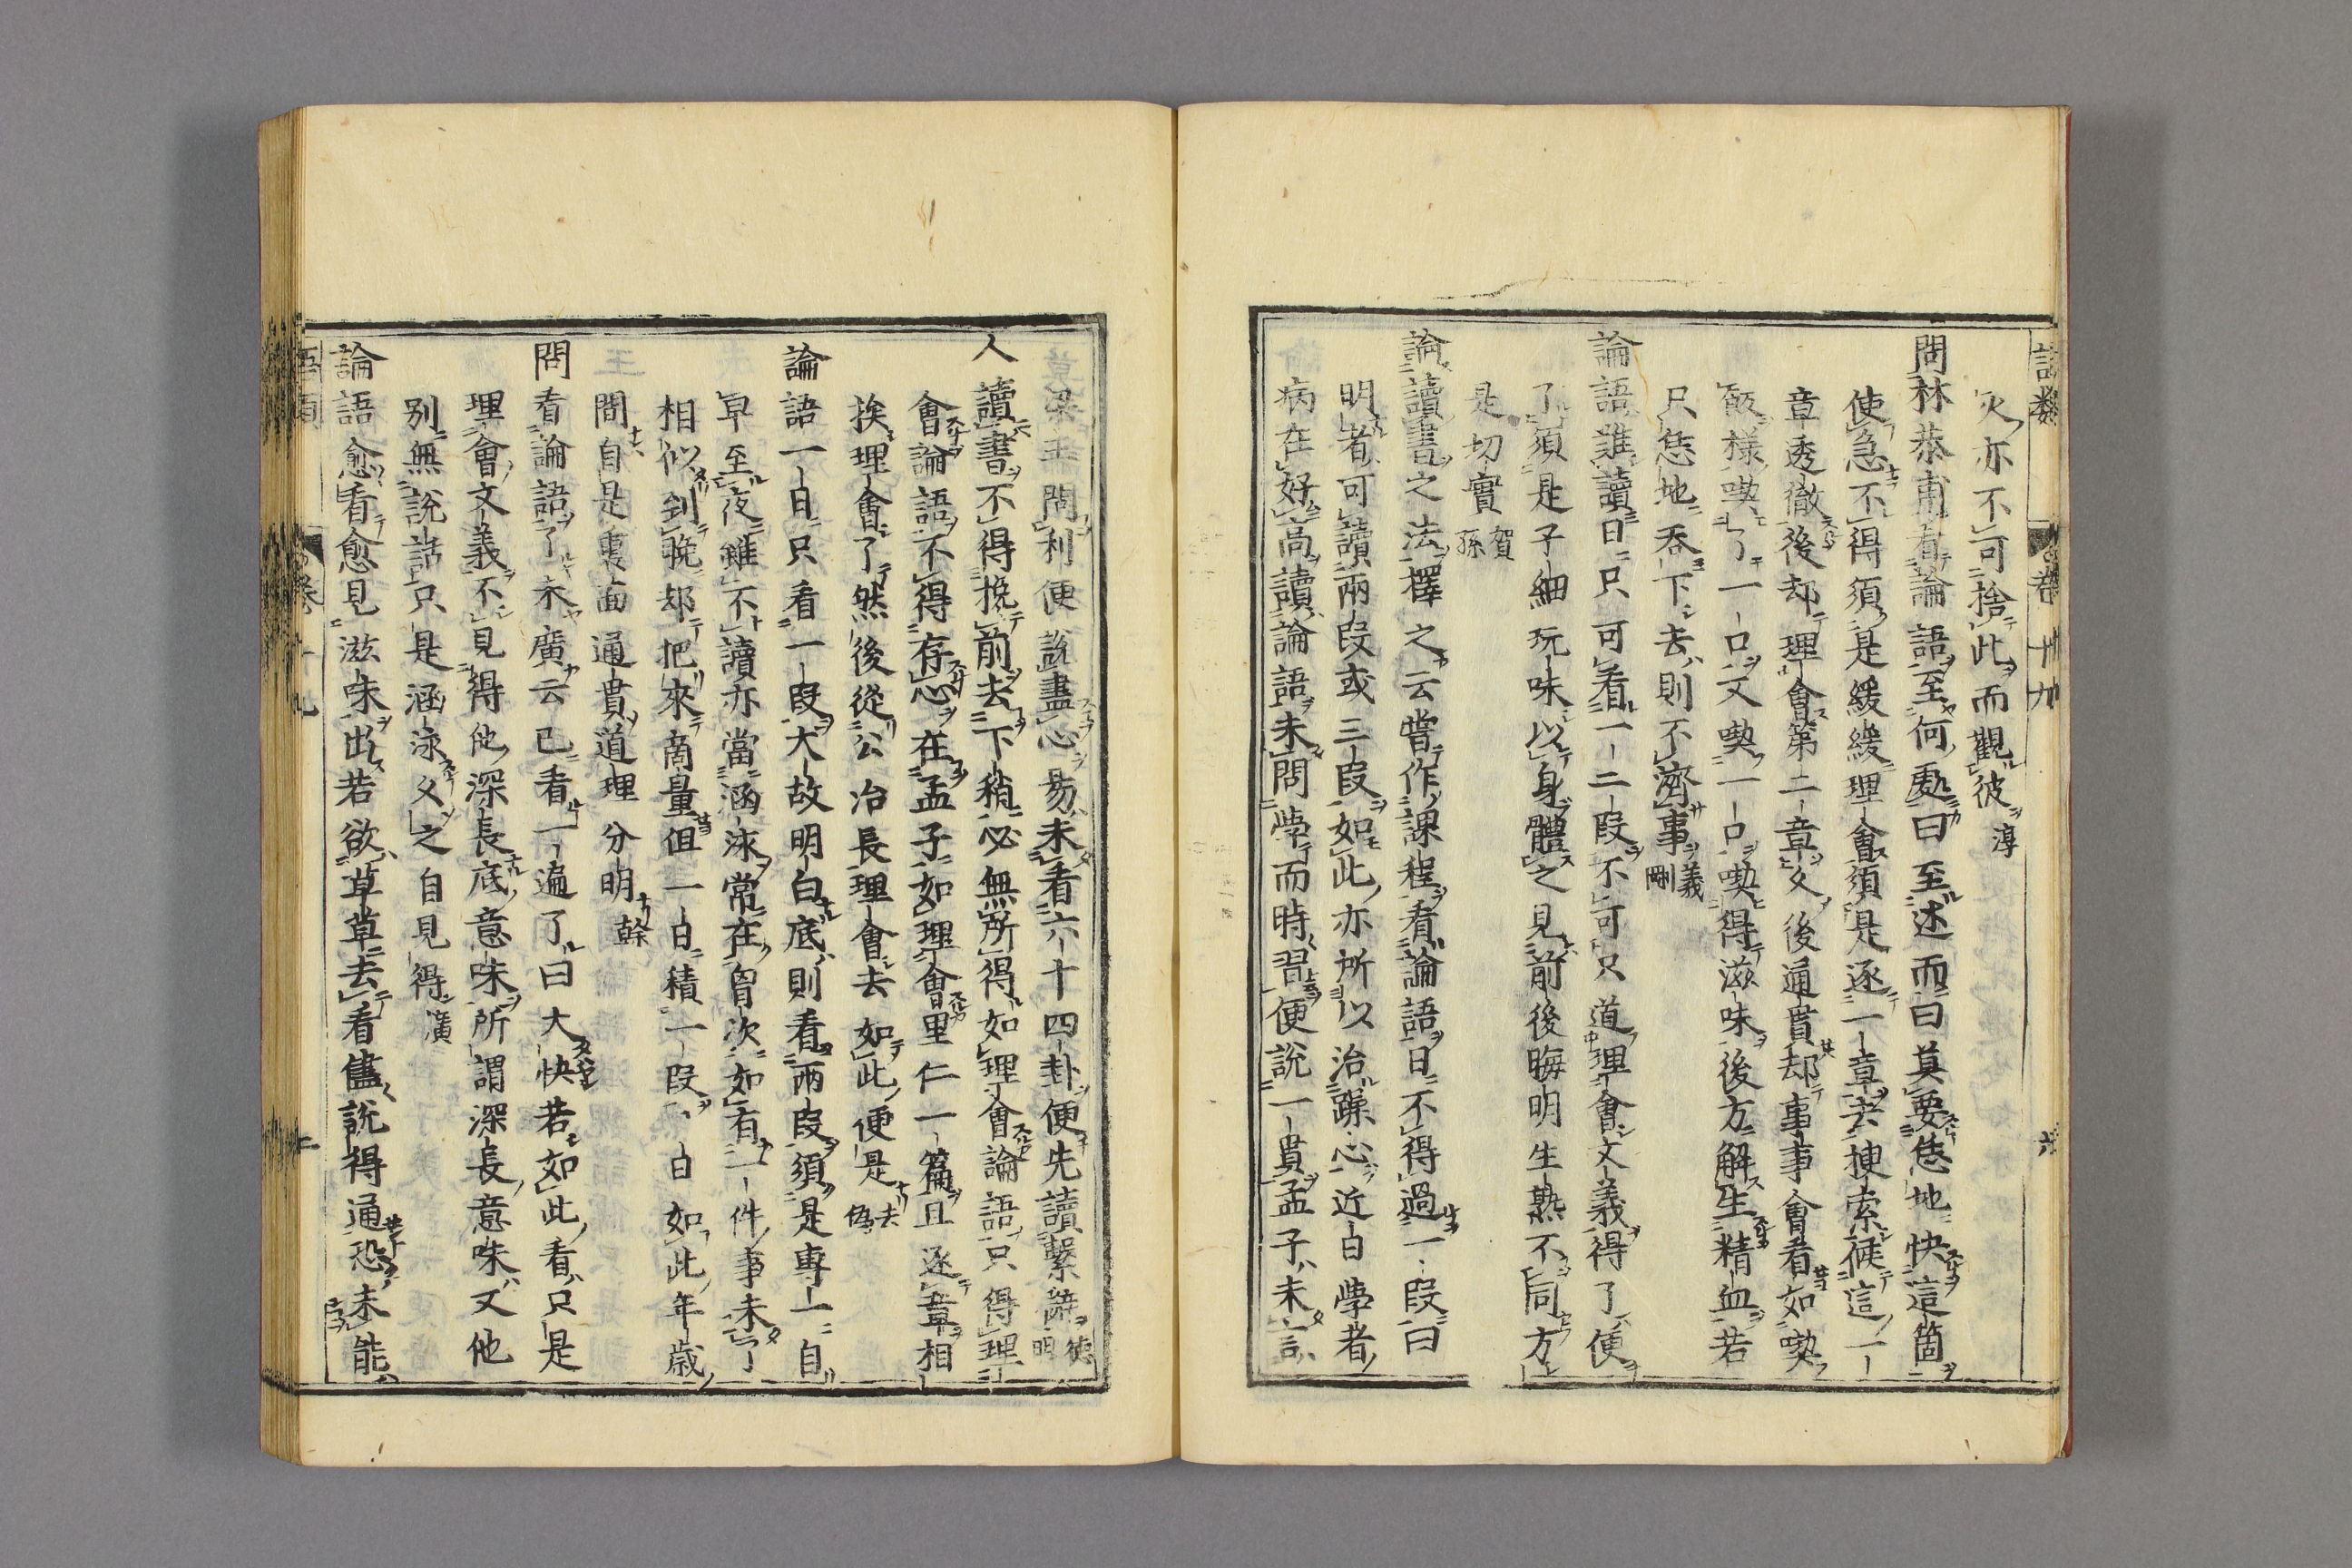 語類 卷十九 六
久亦不可捨此而觀彼淳
問林恭甫看論語至何處曰至述而曰莫要恁地快這箇
使急不得須是緩緩理會須是逐一章去搜索候這一
章透徹後却理會第二章久後通貫却事事會看如喫
飯樣喫了一口又喫一口喫得滋味後方解生精血若
只恁地吞下去則不濟事義剛
論語難讀日只可看一二段不可只道理會文義得了便
了須是子細玩味以身體之見前後晦明生熟不同方
是切實賀孫
論讀書之法擇之云嘗作課程看論語日不得過一段曰
明者可讀兩段或三段如此亦所以治躁心近日學者
病在好高讀論語未問學而時習便說一貫孟子未言
梁王問利便說盡心易未看六十四卦便先讀繫辭德明
人讀書不得攙前去下稍必無所得如理會論語只得理
會論語不得存心在孟子如理會里仁一篇且逐章相
挨理會了然後從公冶長理會去如此便是去僞
論語一日只看一段大故明白底則看兩段須是專一自
早至夜雖不讀亦當涵泳常在胷次如有一件事未了
相似到晚却把來商量但一日積一段日日如此年歲
間自是裏面通貫道理分明榦
問看論語了未廣云已看一遍了曰大快若如此看只是
理會文義不見得他深長底意味所謂深長意味又他
別無說話只是涵泳久之自見得廣
論語愈看愈見滋味出若欲草草去看儘說得通恐未能
語類 卷十九